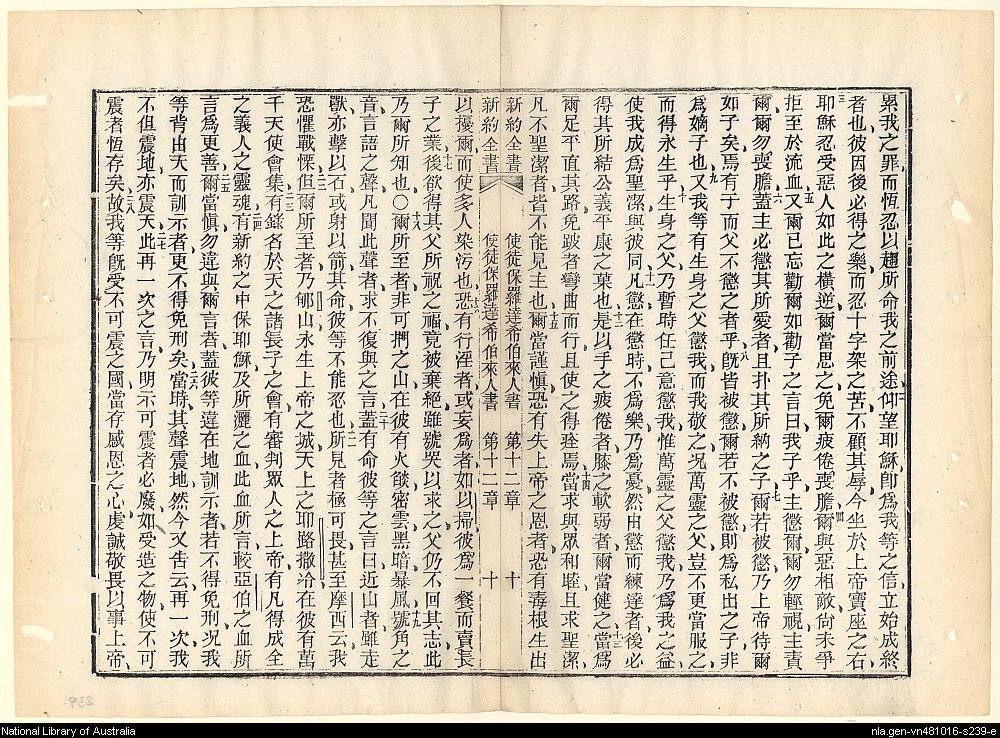 累我之罪而恆忍以趨所命我之前途仰望耶穌卽爲我等之信立始成終
者也彼因後必得之樂而忍十字架之苦不顧其辱今坐於上帝寶座之右
耶穌忍受惡人如此之橫逆爾當思之免爾疲倦喪膽爾與惡相敵尙未爭
拒至於流血又爾已忘勸爾如勸子之言曰我子乎主懲爾爾勿輕視主責
爾爾勿喪膽蓋主必懲其所愛者且扑其所納之子爾若被懲乃上帝待爾
如子矣焉有子而父不懲之者乎旣皆被懲爾若不被懲則爲私出之子非
爲嫡子也又我等有生身之父懲我而我敬之况萬靈之父豈不更當服之
而得永生乎生身之父乃暫時任己意懲我惟萬靈之父懲我乃爲我之益
使我成爲聖潔與彼同凡懲在懲時不爲樂乃爲憂然由懲而練達者後必
得其所結公義平康之菓也是以手之疲倦者膝之軟弱者爾當健之當爲
爾足平直其路免跛者彎曲而行且使之得痊焉當求與眾和睦且求聖潔
凡不聖潔者皆不能見主也爾當謹慎恐有失上帝之恩者恐有毒根生出
新約全書 使徒保羅達希伯來人書 第十二章 十
新約全書 使徒保羅達希伯來人書 第十二章 十
以擾爾而使多人染污也恐有行淫者或妄爲者如以掃彼爲一餐而賣長
子之業後欲得其父所祝之福竟被棄絕雖號哭以求之父仍不回其志此
乃爾所知也〇爾所至者非可捫之山在彼有火燄密雲黑暗暴風號角之
音言語之聲凡聞此聲者求不復與之言蓋有命彼等之言曰近山者雖走
獸亦擊以石或射以箭其命彼等不能忍也所見者極可畏甚至摩西云我
恐懼戰慄但爾所至者乃郇山永生上帝之城天上之耶路撒冷在彼有萬
千天使會集有錄名於天之諸長子之會有審判眾人之上帝有凡得成全
之義人之靈魂有新約之中保耶穌及所灑之血此血所言較亞伯之血所
言爲更善爾當愼勿違與爾言者蓋彼等違在地訓示者若不得免刑况我
等背由天而訓示者更不得免刑矣當時其聲震地然今又告云再一次我
不但震地亦震天此再一次之言乃明示可震者必廢如受造之物使不可
震者恆存矣故我等旣受不可震之國當存感恩之心虔誠敬畏以事上帝
239
National Library of Australia
nla.gen-vn481016-s239-e